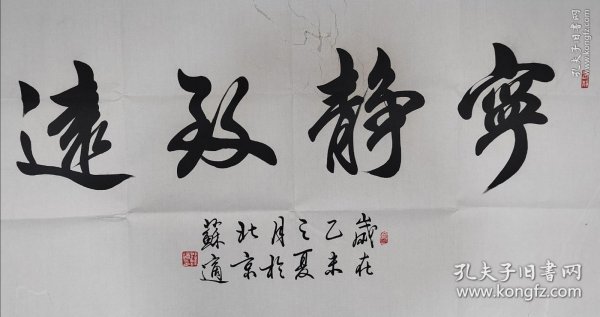 寧靜致遠
歲在
乙未
之夏
月於
北京
蘇適
孔夫子旧书网
孔夫子旧书网
www.kongfz.com